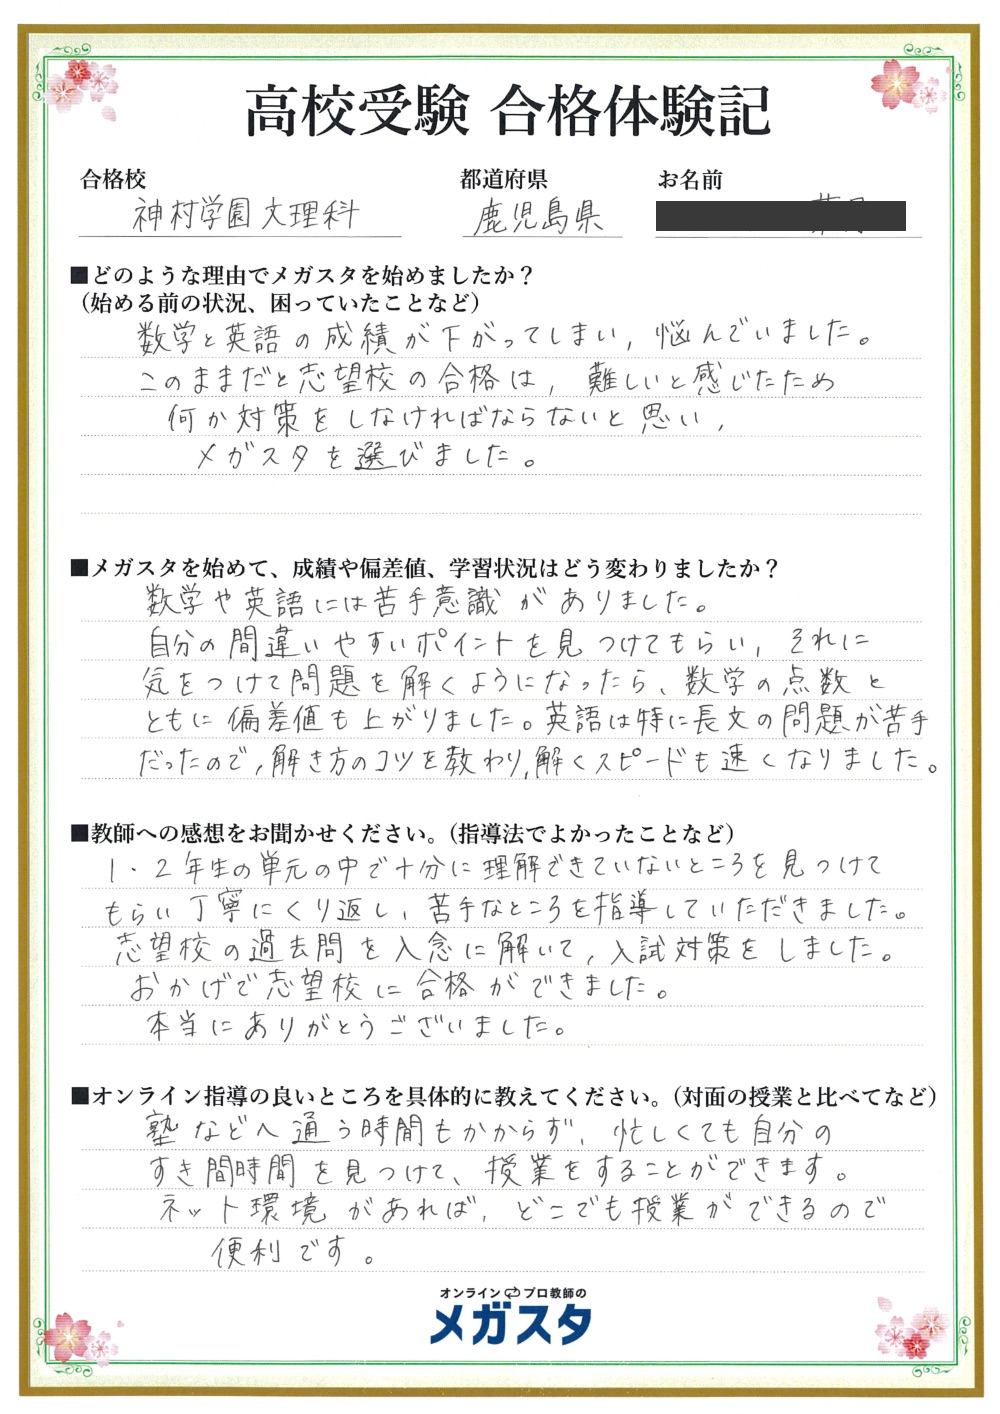 高校受験 合格体験記
合格校 都道府県 お名前
神村学園文理科 鹿児島県
■どのような理由でメガスタを始めましたか？
（始める前の状況、困っていたことなど）
数学と英語の成績が下がってしまい，悩んでいました。
このままだと志望校の合格は，難しいと感じたため
何か対策をしなければならないと思い，
メガスタを選びました。
■メガスタを始めて、成績や偏差値、学習状況はどう変わりましたか？
数学や英語には苦手意識がありました。
自分の間違いやすいポイントを見つけてもらい，それに
気をつけて問題を解くようになったら、数学の点数と
ともに偏差値も上がりました。英語は特に長文の問題が苦手
だったので，解き方のコツを教わり，解くスピードも速くなりました。
■教師への感想をお聞かせください。（指導法でよかったことなど）
1・2年生の単元の中で十分に理解できていないところを見つけて
もらい丁寧にくり返し、苦手なところを指導していただきました。
志望校の過去問を入念に解いて，入試対策をしました。
おかげで志望校に合格ができました。
本当にありがとうございました。
■オンライン指導の良いところを具体的に教えてください。（対面の授業と比べてなど）
塾などへ通う時間もかからず、忙しくても自分の
すき間時間を見つけて、授業をすることができます。
ネット環境があれば，どこでも授業ができるので
便利です。
オンライン プロ教師の
メガスタ